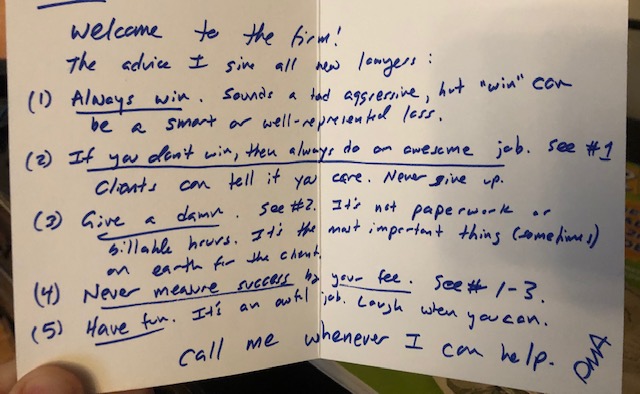 Welcome to the firm!
The advice I give all new lawyers:
(1) Always win. Sounds a tad aggressive, but "win" can
be a smart or well-represented loss.
(2) If you don't win, then always do an awesome job. See #1
Clients can tell if you care. Never give up.
(3) Give a damn. See #2. It's not paperwork or
billable hours. It's the most important thing (sometimes)
on earth for the client.
(4) Never measure success by your fee. See # 1-3.
(5) Have fun. It's an awful job. Laugh when you can.
Call me whenever I can help.
DMA